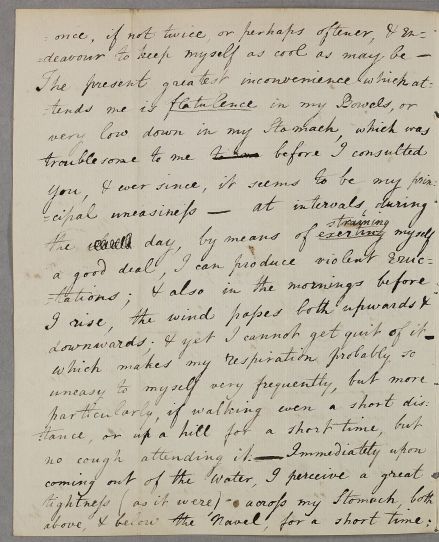 =once, if not twice or perhaps oftener, & en-
=deavour to keep myself as cool as may be —
The present greatest inconvenience which at-
=tends me is flatulence in my Bowels, or
very low down in my Stomach, which was
troublesome to me before I consulted
you, & ever since, it seems to be my prin-
=cipal uneasiness — at intervals during
the day, by means of straining
exerting myself
a good deal, I can produce violent Eruc-
=tations; & also in the mornings before
I rise, the wind passes both upwards &
downwards; & yet I cannot get quit of it —
which makes my respiration probably so
uneasy to myself very frequently, but more
particularly, if walking even a short dis-
=tance, or up a hill for a short time, but
no cough attending it. — Immediately upon
coming out of the water, I perceive a great
tightness (as it were) across my Stomach, both
above, & below the Navel, for a short time: